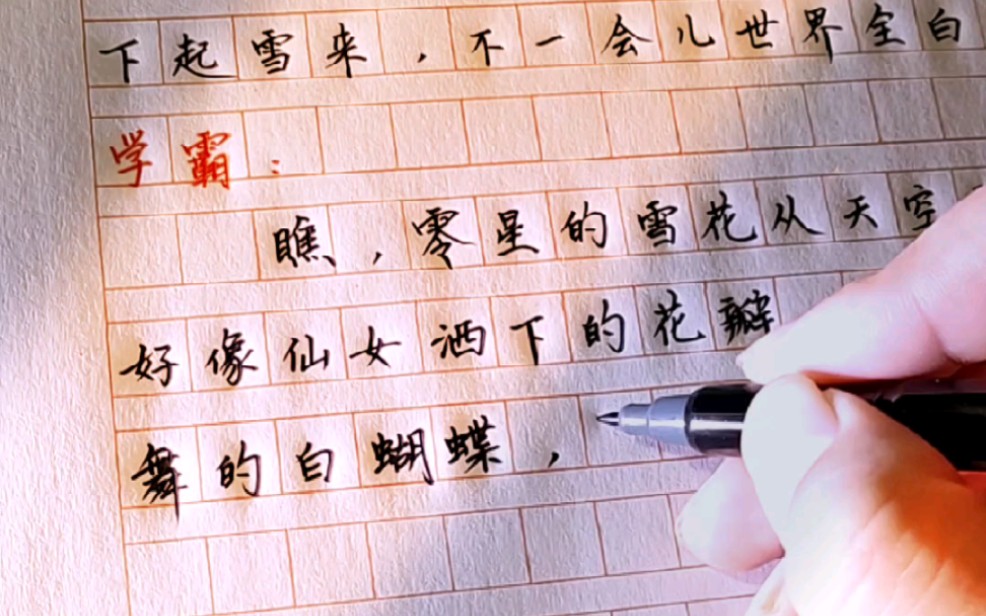 下起雪来，不一会儿世界全白
学霸：
瞧，零星的雪花从天空
好像仙女洒下的花瓣
舞的白蝴蝶，